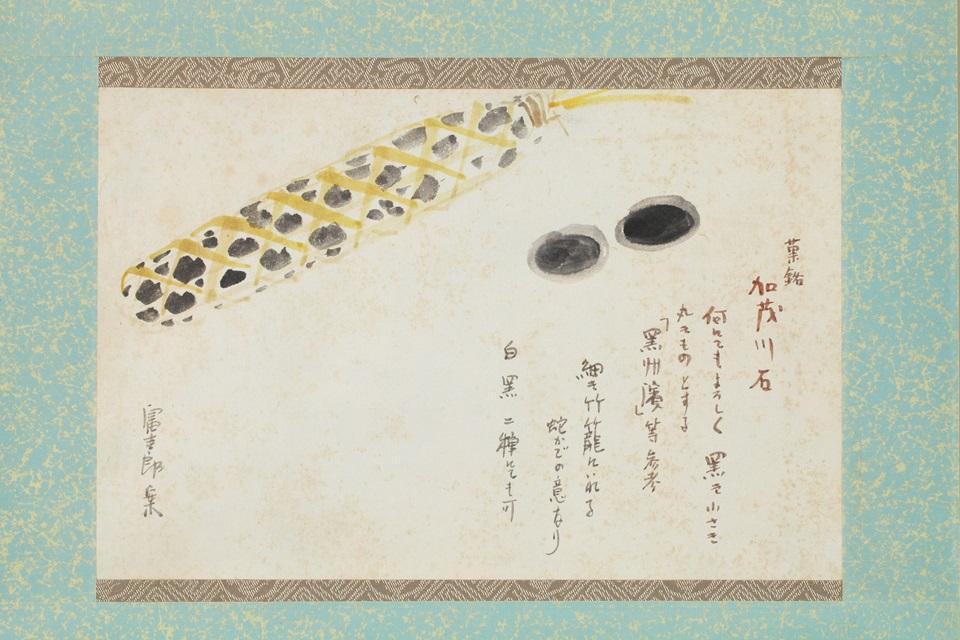 菓銘
加茂川石
何にてもよろしく 黒き小さき
丸きものとする
「黒州濱」等参考
細き竹籠にいれる
蛇かごの意なり
白黒二種にても可
富吉郎案